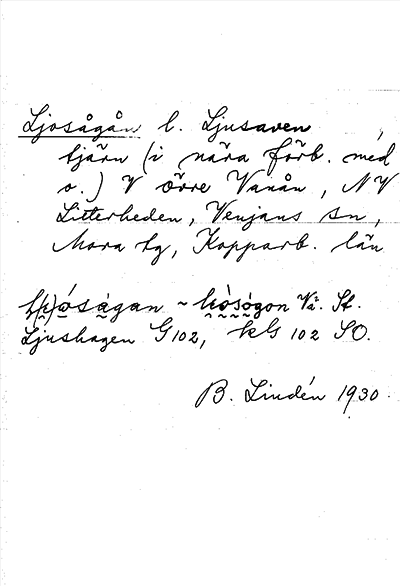 Ljosågån l. Ljusaven
tjärn (i nära förb. med
o.) V Örre Vanån, NV
Litterheden, Venjans sn,
Mora tg, Kopparb. län
Vå. St.
Ljushagen G 102, kG 102 SO.
B. Lindén 1930